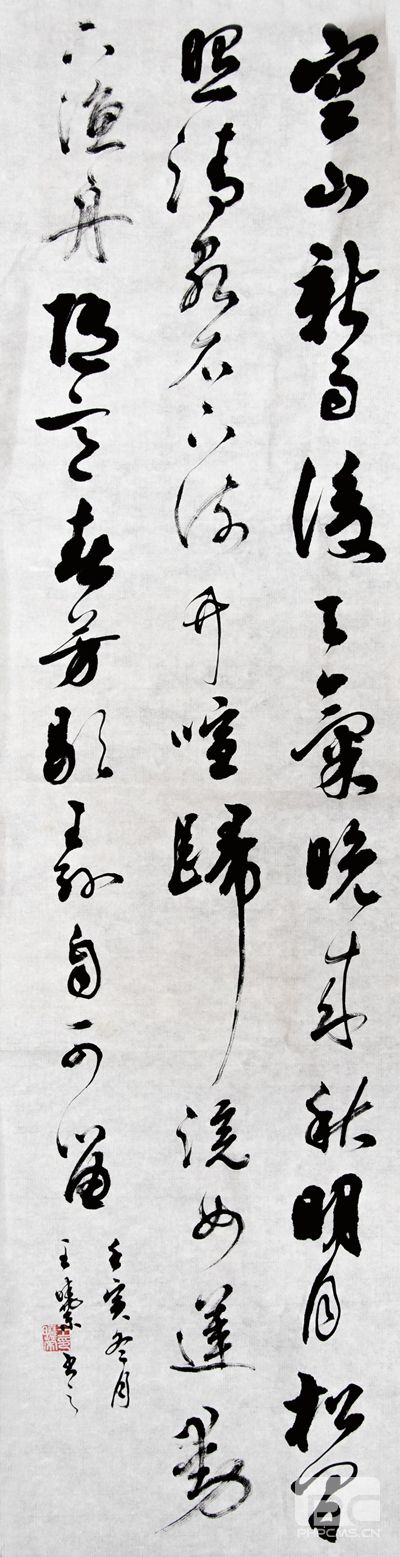 空山新雨後天氣晚來秋明月松間
照清泉石上流竹喧歸浣女蓮動
下漁舟隨意春芳歇王孫自可留
壬寅冬月
王書之
PHPCMS.CN